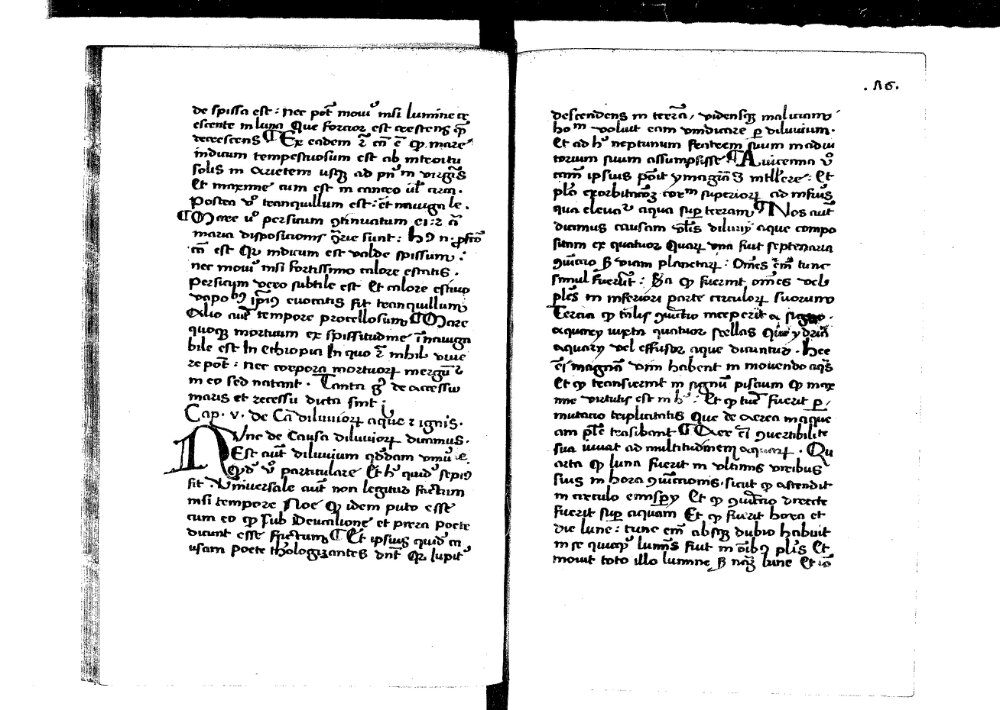 de spissa est : nec pōt moūi nisi lumine cr̄
escente in luna Que forcior est crescens qȝ
decrescens ¶ Ex eadem rō cā ē qȝ mare
indicum tempestuosum est ab introitu
solis in Arietem usqȝ ad pn̄m virginis
Et maxime cum est in cancro ul̄ circa.
Postea v̊ tranquillum est : et nauigale.
¶ Mare v̊ persicum ꝯtinuatum ei :
maria disposicionis ꝯrie sunt :
est Qꝛ indicum est valde spissum :
nec mouī nisi fortissimo calore estatis.
Persicum vero subtile est Et calore estiuo
vapoibȝ ip̄ius euocatis fit tranquillum
Alio aut̄ tempore procellosum ¶ Mare
quoqȝ mortuum ex spissitudine īnauiga
bile est In ethiopia In quo nihil viue
re pōt : nec corpora mortuoꝝ mergūtr
in eo sed natant. Tanta gͦ de accessu
maris et recessu dicta sint ;
Cap. v. de Cā diluuioꝝ aque ꝛ ignis.
NVnc de Causa diluuioꝝ dicamus.
Est aut̄ diluuium qddam vniu͛le.
Qd̄ v̊ particulare Et hͦ quid̄ sepiꝰ
fit. Vniuersale aut̄ non legitur factum
nisi tempore Noe Qꝛ idem puto esse
cum eo qȝ sub Deucalione et pirra poete
dicunt esse factum ¶ Et ipsius quid̄ cā
usam poete theologizantes dn̄t Qꝛ Iupitꝰ
.86.
descendens in terrā, vidensqȝ maliciam
hoīm voluit eam vindicare ꝑ diluuium.
Et ad hͦ neptunum fratrem suum in adiu
torium suum assumpsisse ¶ Auicenna v̊
cām ipsius ponit ymaginē Et
plō exorbitacōȝ corꝝ superioꝝ ad inferiꝰ
qua eleuat̄ aqua suꝑ terram ¶ Nos aut̄
dicimus causam oīs diluuij aque compo
sitam ex quatuor Quaꝝ vna fuit septenaria
ꝯiūctio ẜm viam planetaꝝ : Om̄es em̄ tunc
simul fuerūt : Scda qȝ fuerint om̄es vel
ples in inferiori parte circuloꝝ suorum
Tercia qȝ talis ꝯiūctio inceperit a signo
aquarij iuxta quatuor stellas Que ydria
aquarij vel effusor aque dicuntur. Hee
em̄ magnam vim habent in mouendo aqas
Et qȝ transierint in signum piscium Qꝛ max
ime virtutis est in hͦ : Et qȝ tūc fuerit ꝑ
mutacio triplicitatis Que de aerea in aque
am ꝑte trāsibant ¶ Aer em̄ ꝯuertibilite
sua iuuat ad multitudinem aquaꝝ. Qu
arta qȝ luna fuerit in vltimis viribus
suis in hora ꝯiūctionis, sicut qȝ ascendit
in circulo emispij Et qȝ ꝯiūctio directe
fuerit suꝑ aquam Et qȝ fuerit hora et
die lune : tunc em̄ absqȝ dubio habuit
in se luminis sicut in oībȝ plis Et
mouit toto illo lumine ẜm nām lune Et īo